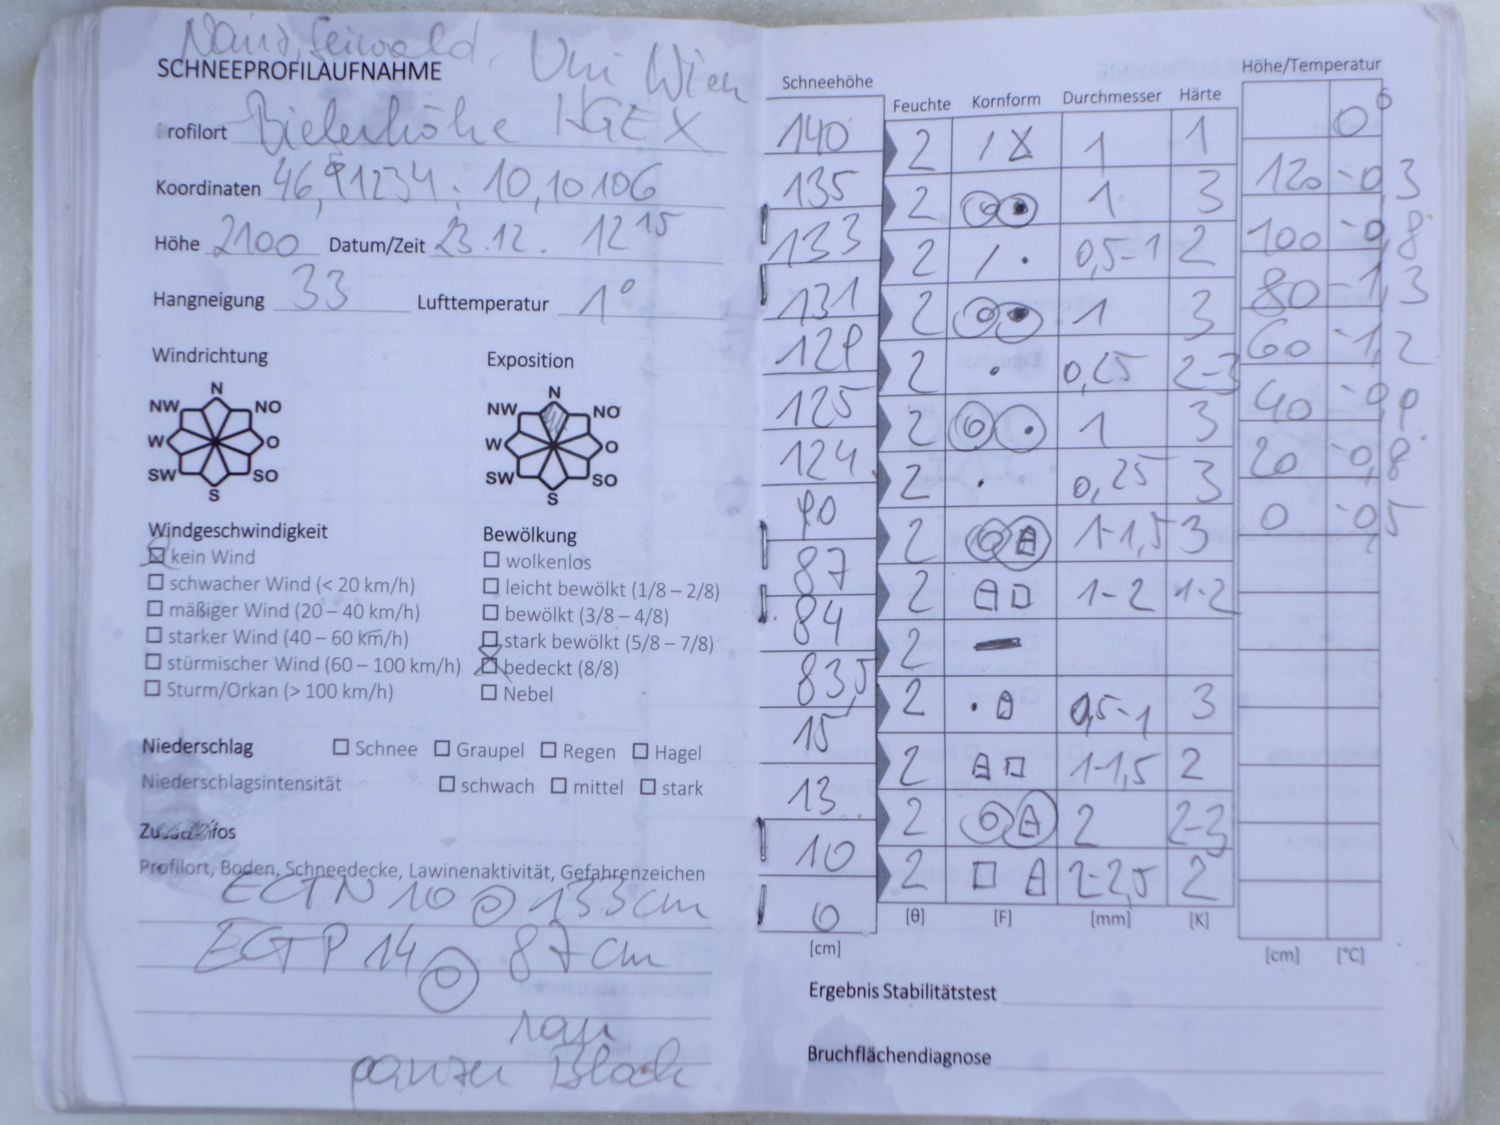 Uni Wien
SCHNEEPROFILAUFNAHME
rofilort Bielerhöhe
Koordinaten 46,91234; 10,10106
Höhe 2100 Datum/Zeit 23.12. 12 15
Hangneigung 33 Lufttemperatur 1°
Windrichtung Exposition
N
NW NO
W O
SW SO
S
N
NW NO
W O
SW SO
S
Windgeschwindigkeit
kein Wind
schwacher Wind (< 20 km/h)
mäßiger Wind (20 – 40 km/h)
starker Wind (40 – 60 km/h)
stürmischer Wind (60 – 100 km/h)
Sturm/Orkan (> 100 km/h)
Bewölkung
wolkenlos
leicht bewölkt (1/8 – 2/8)
bewölkt (3/8 – 4/8)
stark bewölkt (5/8 – 7/8)
bedeckt (8/8)
Nebel
Niederschlag Schnee Graupel Regen Hagel
Niederschlagsintensität schwach mittel stark
Profilort, Boden, Schneedecke, Lawinenaktivität, Gefahrenzeichen
ECTN 10 @ 133cm
ECTP 14 @ 87cm
rau
ganzer Block
Schneehöhe Feuchte Kornform Durchmesser Härte Höhe/Temperatur
140 2 / 1 1 0
135 2 1 3 120 -0,3
133 2 / • 0,5-1 2 100 -0,8
131 2 1 3 80 -1,3
129 2 • 0,25 2-3 60 -1,2
125 2 1 3 40 -0,9
124 2 • 0,25 3 20 -0,8
90 2 1-1,5 3 0 -0,5
87 2 1-2 1-2
84 2
83,5 2 • 0,5-1 3
15 2 1-1,5 2
13 2 2 2-3
10 2 2-2,5 2
0
[cm] [θ] [F] [mm] [K] [cm] [°C]
Ergebnis Stabilitätstest
Bruchflächendiagnose